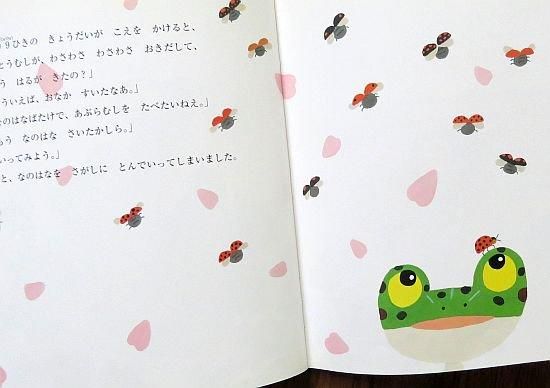 9ひきの きょうだいが こえを かけると、
とうむしが、わさわさ わさわさ おきだして、
う はるが きたの？」
ういえば、おなか すいたなあ。」
のはなばたけで、あぶらむしを たべたいねえ。」
もう なのはな さいたかしら。」
いってみよう。」
と、なのはなを さがしに とんでいってしまいました。